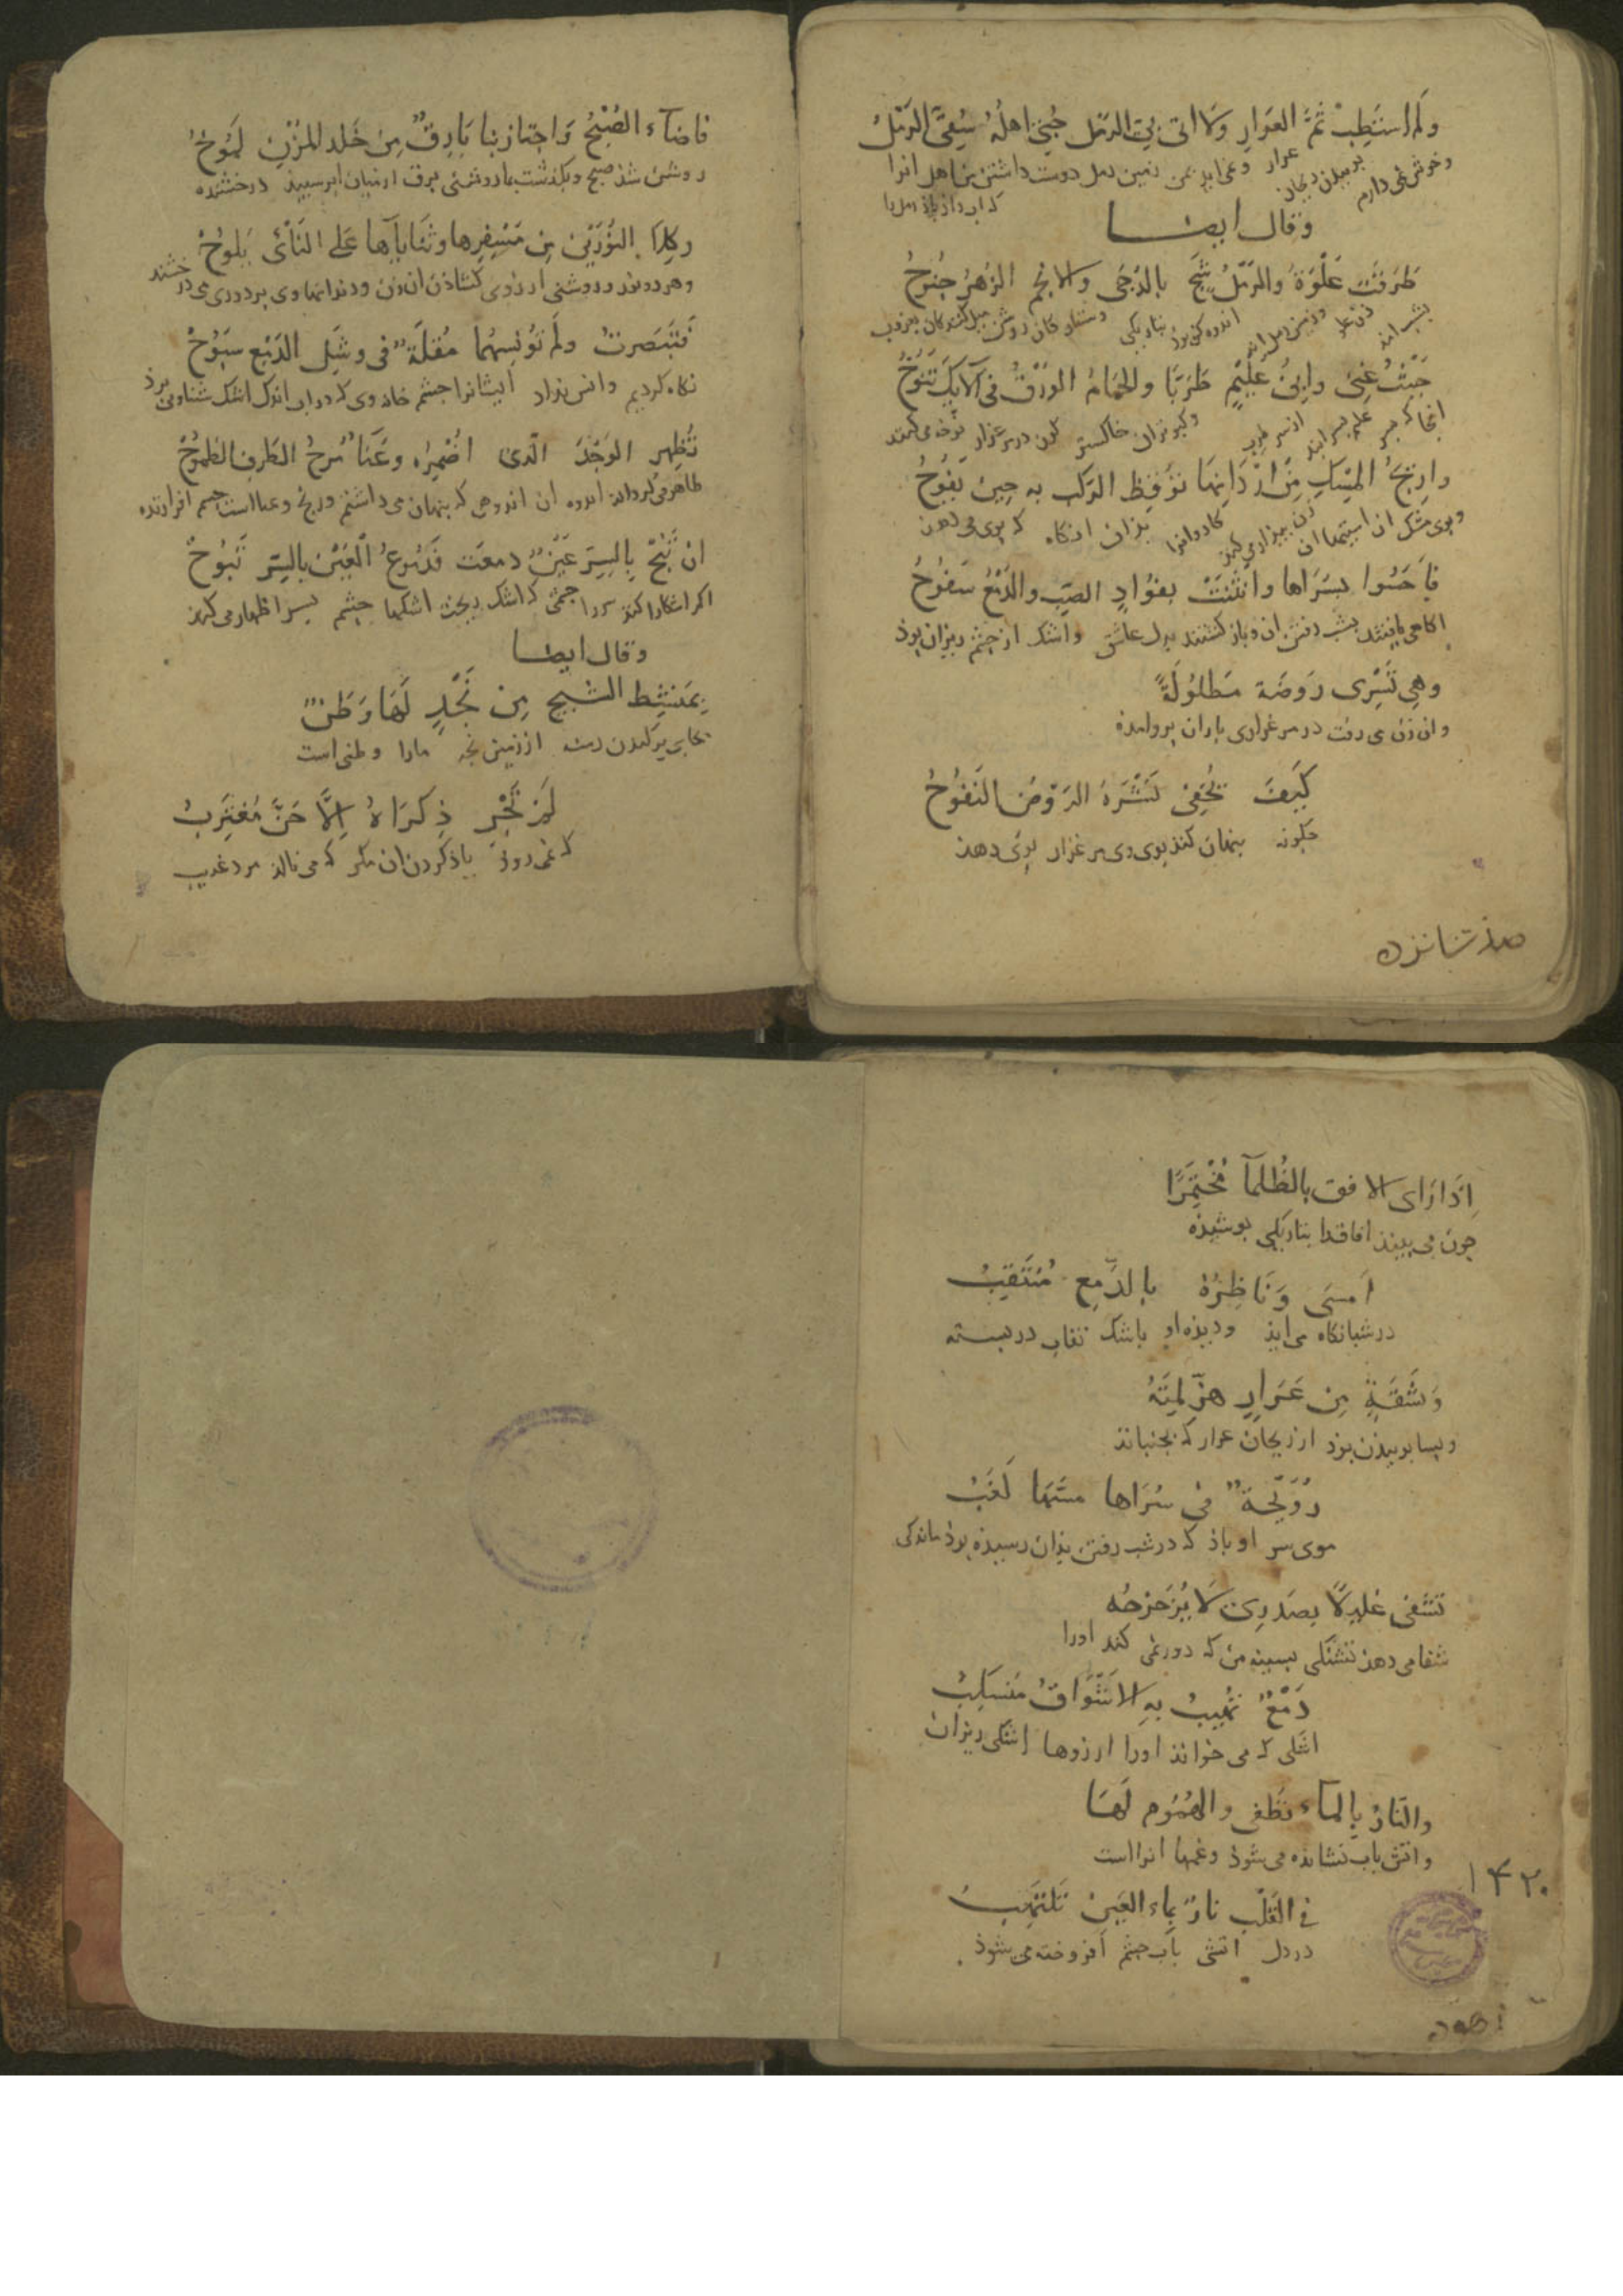 ولم استطب ثَمَّ العَرارِ ولا اتى بى الرمل حُبّى اهلُهُ سُقِىَ الرملُ
وخوش نمى دارم بوييدن ريحان عرار و نمى ايد بمن زمين رمل دوست داشتن من اهل انرا
كه اب داذ باذ رمل را
وقال ايضا
طَرَقَتْ عَلْوَةُ والرَمْلُ شَجٍ بالدُجَى والانجم الزُهرُ جُنوحُ
بشب امذ
حَيْثُ غِنى وابنُ عُلَيَّمٍ طَرَبًا والحَمامُ الوُرْقُ فى الايك تَنُوحُ
انجا كه
وكبوتران خاكستر كون در مرغزار نوحه مى كردند
واريجُ المِسكِ من اردانِها توقِظ الركب به حين يَفُوحُ
وبوى مشك از استينها ان زن بيدار مى كرد كاروانرا بذان انكاه كه بوى مى دهذ
فاَحَسُّوا بِسُرَاها وانثنَتْ بفؤادِ الصبِّ والدمْعُ سَفُوحُ
اكاهى يافتند بشب رفتن ان و باز كشتند بدل عاشق و اشك از چشم ريزان بوذ
وهى تَسْرِى رَوضَة مَطلُولَةً
وان زن مى رفت در مرغزارى باران بروامذه
كَيفَ تُخفِى نَشْرَهُ الرَوضُ النَفُوحُ
چكونه پنهان كند بوى وى مرغزار بوى دهند
فاضآء الصُبْحُ وَاجتاز بنا بَارِقٌ مِن خَلَد المُزْنِ لَمُوحُ
روشن شذ صبح و بكذشت بما روشنى برق از ميان ابر سپيذ درخشنده
وكِلاَ النُورَيْنِ مِن مَسْفِرِها وثَنَاياها عَلى النَأىِ يَلُوحُ
وهر دو نور و روشنى از روى كشاذن ان زن و دندانها وى بر دورى مى درخشند
فتبَصَّرتُ ولم تُؤنِسهُما مُقلَةٌ فى وشَلِ الدَمْعِ سَبُوحُ
نكاه كرديم و انس نداد ايشانرا چشم خانه وى كه در اب اندك اشك شناور بوذ
تُظهِر الوَجْدَ الّذى اُضمِرُه وعَنآءٌ تَرحُ الطَرفِ الطَمُوحُ
ظاهر مى كرداند اندوه ان اندوهى كه پنهان مى داشتم و رنج و عنا است چشم افرازنده
ان تَبُحْ بالسِرِّ عَيْنٌ دمعَت فَدُموعُ العَيْنِ بالسِرِّ تَبُوحُ
اكر اشكارا كند سر را چشمى كه اشك ريخت اشكها چشم بسر اظهار مى كند
وقال ايضا
بِمَنشِط الشِيحِ مِن نَجْدٍ لَها وَطَنٌ
بجاى بركندن درمنه از زمين نجد مارا وطنى است
لَم تَجْرِ ذِكرَاهُ اِلَّا حَنَّ مُغتَرِبُ
كه نمى روذ ياذ كردن ان مكر كه مى نالذ مرد غريب
صذ شانزده
اِذَا رَاى الافق بالظُلمآ مُختَمِرًا
چون مى بيند افاقرا بتاريكى پوشيذه
اَمسَى وَنَاظِرُهُ بالدَّمعِ مُنتَقِبُ
در شبانكاه مى ايذ و ديذه او باشك نقاب در بسته
وَنَشْقَةٍ مِن عَرَارٍ هزّ لِمتَهُ
و بسا بوييذن بوذ از ريحان عرار كه بجنبانذ
رُوَيْحَةٌ فى سُرَاها مسّها لَغَبُ
موى سر او باذ كه در شب رفتن بذان رسيذه بوذ ماندكى
تشفى غليلًا بصَدرى لَا يُزَحزِحُه
شفا مى دهذ تشنكى بسينه من كه دور نمى كند اورا
دَمْعٌ تُهيبُ بِهِ الاشَواقُ مُنسَكِبُ
اشكى كه مى خواند اورا ارزوها اشكى ريزان
والنّارُ بالماء تُطفى والهُمُوم لَهَا
و اتش باب نشانده مى شوذ و غمها انرا است
فى القَلبِ نارٌ بِماء العَينِ تَلتَهِبُ
در دل اتشى باب چشم افروخته مى شوذ
۱۴۲۰